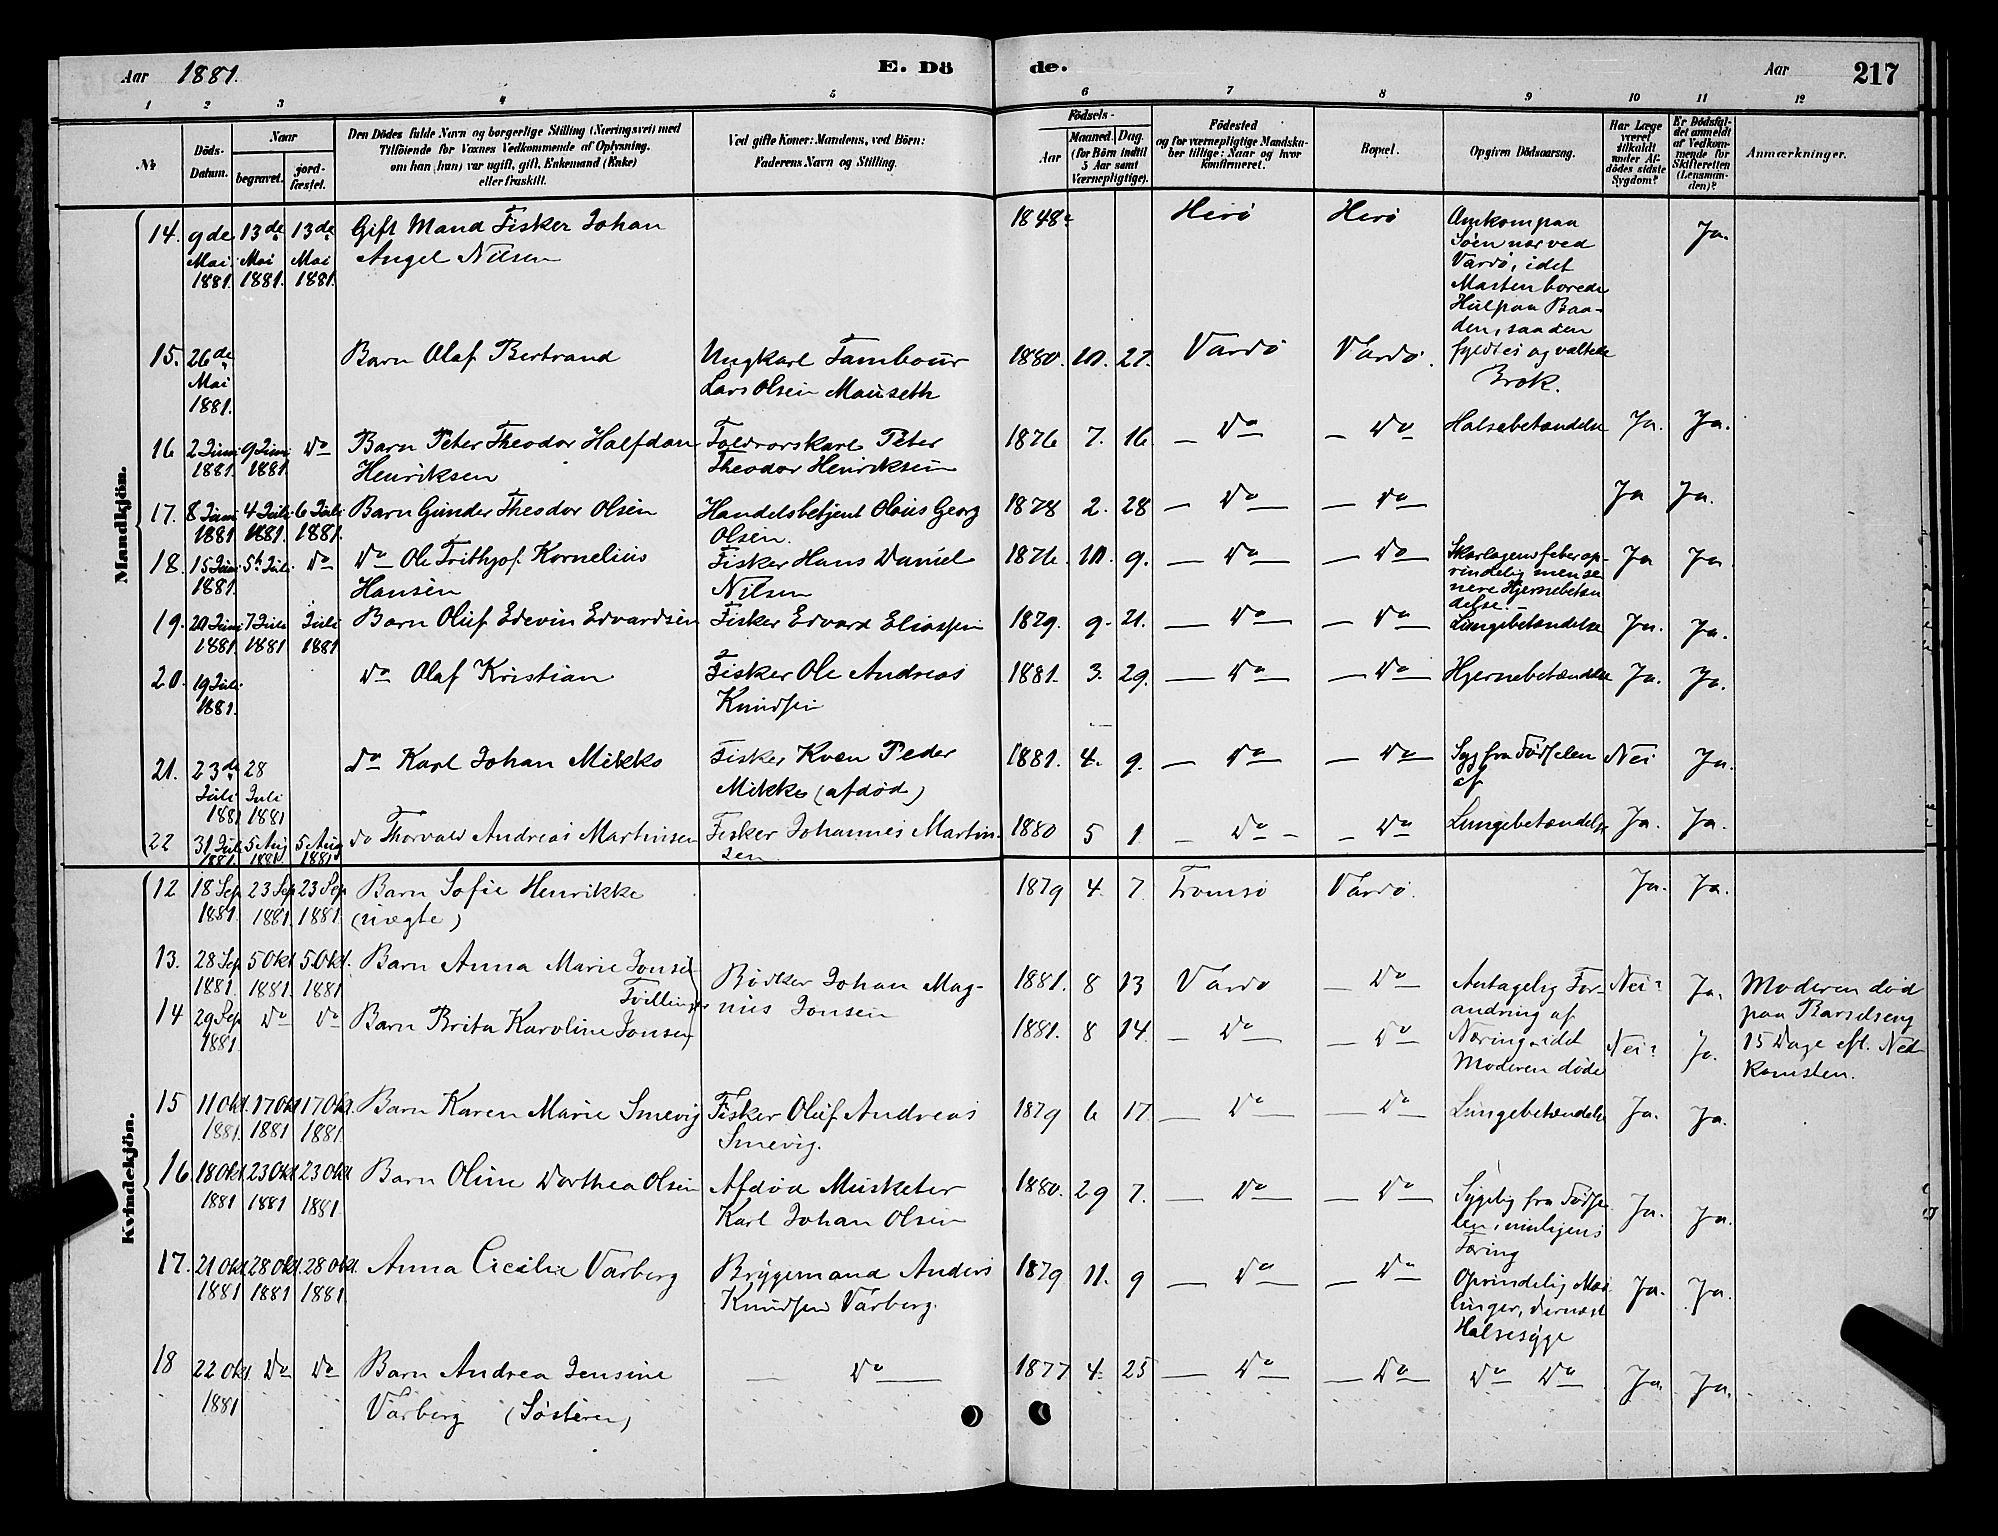 Aar 1881. E. Dö de. Aar 217
1 2 3 4 5 6 7 8 9 10 11 12
No. Döds-Datum. Naar begravet. jordfæstet. Den Dödes fulde Navn og borgerlige Stilling (Næringsvei) med Tilföiende for Voxnes Vedkommende af Oplysning, om han (hun) var ugift, gift, Enkemand (Enke) eller fraskilt. Ved gifte Koner: Mandens, ved Börn: Faderens Navn og Stilling. Födsels- Aar Maaned. Dag. (for Börn indtil 5 Aar samt Værnepligtige). Födested og for værnepligtige Mandskaber tillige: Naar og hvor konfirmeret. Bopæl. Opgiven Dödsaarsag. Har Læge været tilkaldt under Afdödes sidste Sygdom? Er Dödsfaldet anmeldt af Vedkommende for Skifteretten (Lensmanden)? Anmærkninger.
Mandkjön.
14. 9de Mai 1881. 13de Mai 1881. 13de Mai 1881. Gift Mand Fisker Johan Angel Nilsen 1848 Herö Herö Omkom paa Söen nær ved Vardö, idet Masten borede Hul paa Baaden, saa den fyldtes og væltede Ja.
15. 26de Mai 1881. Barn Olaf Bertrand Ungkarl Tambour Lars Olsen Mauseth 1880. 10. 27. Vardö Vardö. Brok.
16 2 Juni 1881. 9 Juni 1881. Do Barn Peter Theodor Halfdan Henriksen Toldrorskarl Peter Theodor Henriksen 1876 7. 16. Do Do Halsebetændelse Ja. Ja.
17. 8 Juni 1881 4 Juli 1881. 6 Juli 1881. Barn Gunder Theodor Olsen Handelsbetjent Olaus Georg Olsen. 1878 2. 28 Do Do Ja Ja.
18. 15 Juni 1881. 5te Juli. Do Do Ole Frithjof Kornelius Hansen Fisker Hans Daniel Nilsen 1876. 10. 9. Do Do Skarlagensfeber oprindelig men senere Hjernebetændelse. Ja Ja.
19. 20 Juni 1881. 7 Juli 1881 Juli 1881. Barn Oluf Edevin Edvardsen Fisker Edvard Eliassen 1879. 9. 21. Do Do Lungebetændelse Ja. Ja.
20. 19 Juli 1881. Do Olaf Kristian Fisker Ole Andreas Knudsen 1881. 3. 29. Do Do Hjernebetændelse Ja. Ja.
21. 23de Juli 1881 28 Juli 1881 Do Karl Johan Mikko Fisker Kvæn Peder Mikko (afdöd) 1881. 4. 9. Do Do Syg fra Födselen af Nei Ja.
22 31 Juli 1881. 5 Aug 1881. 5 Aug 1881 do Thorvald Andreas Martinsen Fisker Johannes Martinsen 1880 5 1. Do Do Lungebetændelse Ja. Ja.
Kvindekjön.
12 18 Sep 1881. 23 Sep 1881. 23 Sep 1881. Barn Sofie Henrikke (uægte) 1879 4. 7. Tromsö Vardö. Ja. Ja.
13. 28 Sep 1881. 5 Okt 1881. 5 Okt. 1881 Barn Anna Marie Jonsen Tvillinger Bödker Johan Magnus Jonsen 1881. 8 13 Vardö Do Antagelig Forandring af Næring, idet Moderen döde Nei? Ja. Moderen död paa Barselseng 15 Dage eft. Nedkomsten.
14 29 Sep 1881. Do Do Barn Brita Karoline Jonsen 1881. 8 14. Do Do Nei? Ja.
15 11 Okt. 1881. 17 Okt. 1881 17 Okt. 1881. Barn Karen Marie Smevig Fisker Oluf Andreas Smevig. 1879 6 17. Do Do Lungebetændelse Ja. Ja.
16. 18 Okt. 1881 23 Okt. 1881 23 Okt. 1881. Barn Oline Dorthea Olsen Afdöd Musketer Karl Johan Olsen 1880. 29 7. Do Do Sygelig fra Födselen, Tæring Ja. Ja.
17. 21 Okt. 1881 28 Okt. 1881 28 Okt. 1881. Anna Cicilie Varberg Bryggemand Anders Knudsen Varberg. 1879 11. 9 Do Do Oprindelig Mæslinger, dernæst Halsesyge Ja. Ja.
18 22 Okt. 1881 Do Do Barn Andrea Jensine Varberg (Sösteren) Do 1877 4. 25 Do Do Do Do Ja. Ja.